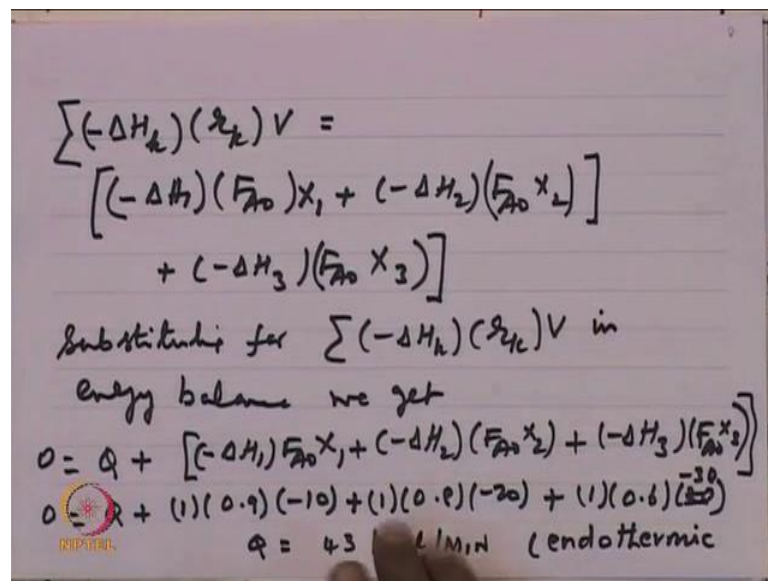 ∑(-ΔH_k)(r_k)V =
[(-ΔH_1)(F_A0)X_1 + (-ΔH_2)(F_A0 X_2)]
+ (-ΔH_3)(F_A0 X_3)]
Substituting for ∑(-ΔH_k)(r_k)V in
energy balance we get
0 = Q + [(-ΔH_1)F_A0 X_1 + (-ΔH_2)(F_A0 X_2) + (-ΔH_3)(F_A0 X_3)]
0 = Q + (1)(0.9)(-10) + (1)(0.8)(-20) + (1)(0.6)(-30)
NPTEL
Q = 43 /MIN (endothermic